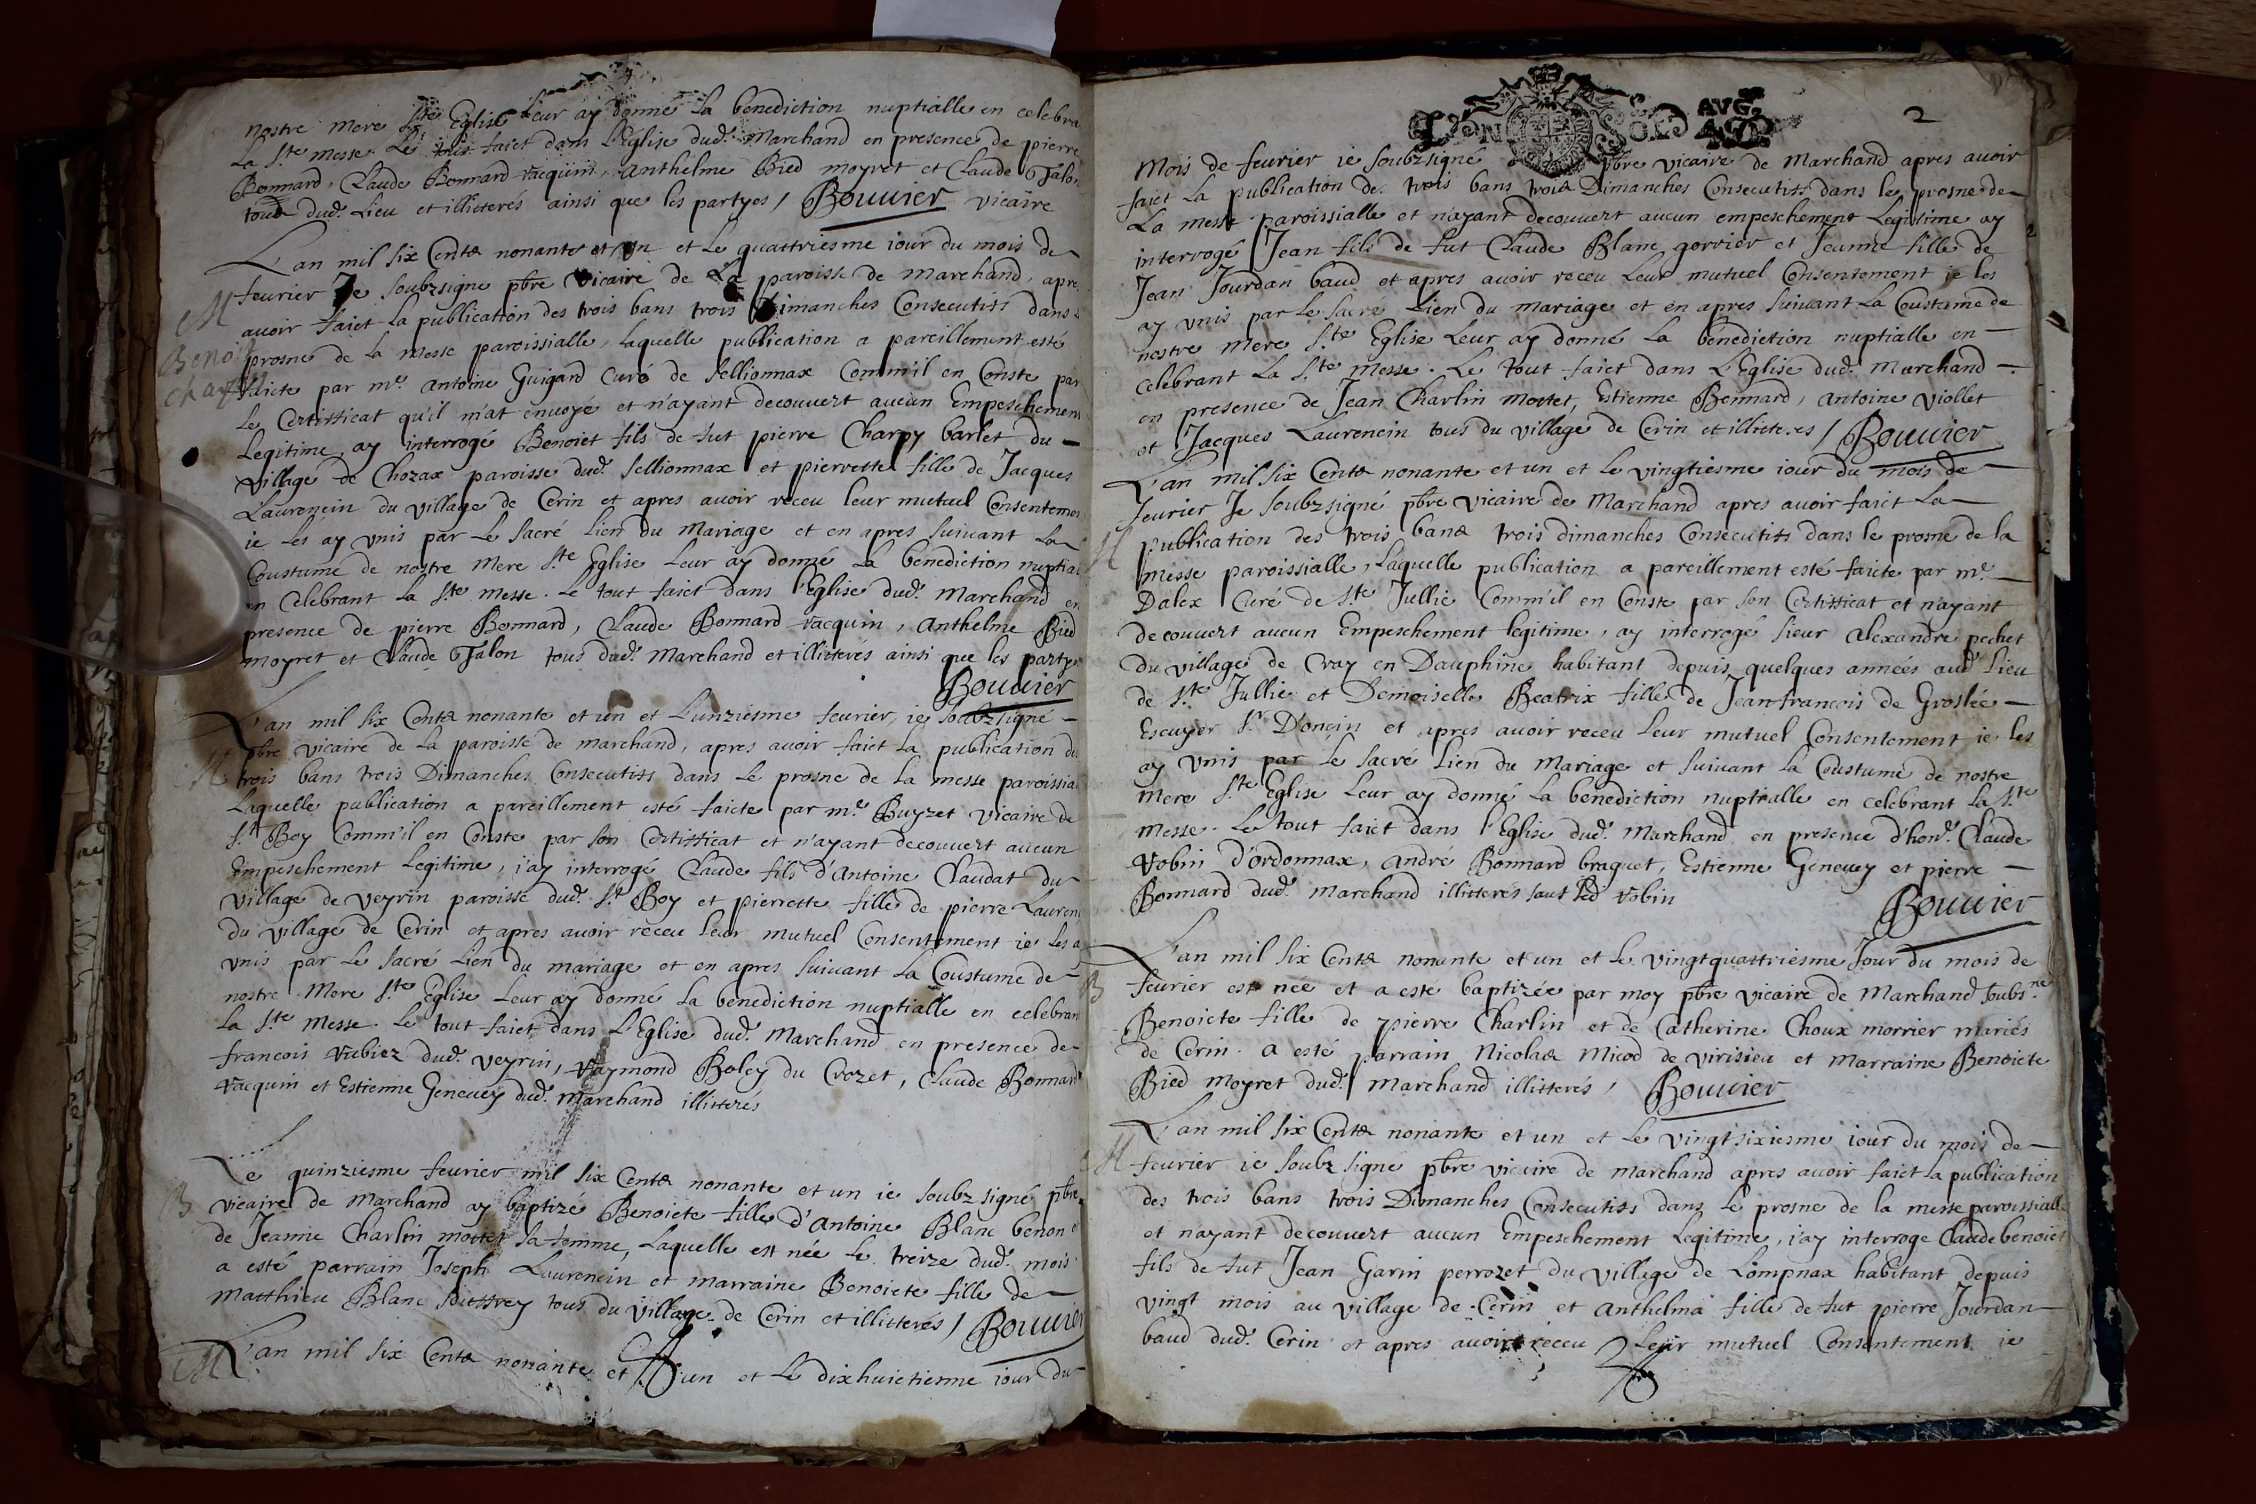 nostre mere Ste Eglise leur ay donné la benediction nuptialle en celebra
la Ste messe. Le tout faict dans l'Eglise dud. Marchand en presence de pierre
Bonnard, Claude Bonnard racquin, Anthelme Bied moyret et Claude Talon
tous dud. Lieu et illitterés ainsi que les partyes / Bouuier vicaire
L'an mil six Cents nonante et un et le quattriesme iour du mois de
feurier Je soubzsigne pbre vicaire de La paroisse de Marchand, apre
M
auoir faict la publication des trois bans trois Dimanches Consecutifs dans
Benoi
prosne de la messe paroissialle, laquelle publication a pareillement esté
cha
faicte par mre Antoine Guigard Curé de Sellionnax Comm'il en Conste par
Le Certifficat qu'il m'at enuoyé et n'ayant decouuert aucun Empeschement
Legitime, ay interrogé Benoict fils de fut pierre Charpy barlet du
village de Chozax paroisse dud. Sellionnax et pierrette fille de Jacques
Laurencin du village de Cerin et apres auoir receu leur mutuel Consentemen
ie les ay vnis par Le Sacré Lien du Mariage et en apres suiuant La
Coustume de nostre Mere Ste Eglise Leur ay donné La benediction nuptia
en Celebrant La Ste messe. Le tout faict dans l'Eglise dud. Marchand en
presence de pierre Bonnard, Claude Bonnard racquin, Anthelme Bied
moyret et Claude Talon tous dud. Marchand et illitterés ainsi que les party
Bouuier
L'an mil six Cents nonante et un et L'unziesme feurier, ie soubzsigné
pbre vicaire de La paroisse de marchand, apres auoir faict La publication de
M
trois bans trois Dimanches Consecutifs dans Le prosne de la messe paroissia
Laquelle publication a pareillement esté faicte par mre Buyzet vicaire de
St Boy Comm'il en Conste par son Certifficat et n'ayant decouuert aucun
Empeschement Legitime, i'ay interrogé Claude fils d'Antoine Claudat du
village de Veyrin paroisse dud. St Boy et pierrette fille de pierre Lauren
du village de Cerin et apres auoir receu leur mutuel Consentement ie les a
vnis par Le Sacré Lien du mariage et en apres suiuant La Coustume de
nostre Mere Ste Eglise Leur ay donné La benediction nuptialle en celebran
La Ste Messe. Le tout faict dans L'Eglise dud. Marchand en presence de
francois rubiez dud. veyrin, raymond Boley du Crozet, Claude Bonnard
racquin et Estienne Geneuey dud. Marchand illitterés
Le quinziesme feurier mil six Cents nonante et un ie soubz signé pbre
B
vicaire de Marchand ay baptizé Benoicte fille d'Antoine Blanc benon
de Jeanne Charlin mottet sa femme, laquelle est née Le treize dud. mois
a esté parrain Joseph Laurencin et marraine Benoicte fille de
Matthieu Blanc tous du village de Cerin et illitterés / Bouuier
M
L'an mil six Cents nonante et un et Le dixhuictiesme iour du
2
AVG.on
mois de feurier ie soubzsigné pbre vicaire de Marchand apres auoir
faict La publication des trois bans trois Dimanches Consecutifs dans les prosne de
La messe paroissialle et n'ayant decouuert aucun empeschement Legitime ay
interrogé Jean fils de fut Claude Blanc gorrier et Jeanne fille de
Jean Jourdan baud et apres auoir receu Leur mutuel Consentement ie les
ay vnis par Le Sacré Lien du mariage et en apres suiuant La Coustume de
nostre mere Ste Eglise Leur ay donné La benediction nuptialle en
celebrant La Ste messe. Le tout faict dans L'Eglise dud. Marchand
en presence de Jean Charlin Mottet, Estienne Bonnard, Antoine Viollet
et Jacques Laurencin tous du village de Cerin et illitteres / Bouuier
L'an mil six Cents nonante et un et le vingtiesme iour du mois de
feurier Je soubzsigné pbre vicaire de Marchand apres auoir faict La
M
publication des trois bans trois dimanches Consecutifs dans le prosne de la
messe paroissialle, Laquelle publication a pareillement esté faicte par mre
Dalex Curé de Ste Jullie Comm'il en Conste par son Certifficat et n'ayant
decouuert aucun Empeschement legitime, ay interrogé sieur Alexandre pechet
du village de Cray en Dauphiné habitant depuis quelques années aud. Lieu
de Ste Jullie et Demoiselle Beatrix fille de Jean francois de Groslée
Escuyer Sr Doncin et apres auoir receu Leur mutuel Consentement ie les
ay vnis par Le Sacré Lien du Mariage et suiuant La Coustume de nostre
Mere Ste Eglise Leur ay donné La benediction nuptialle en celebrant La Ste
messe. Le tout faict dans l'Eglise dud. Marchand en presence d'hon. Claude
robin d'ordonnax, André Bonnard braguet, Estienne Geneuey et pierre
Bonnard dud. Marchand illitterés sauf led robin
Bouuier
L'an mil six Cents nonante et un et Le vingtquattriesme Jour du mois de
B
feurier est née et a este baptizée par moy pbre vicaire de Marchand soubs.né
Benoicte fille de pierre Charlin et de Catherine Choux morrier mariés
de Cerin. a esté parrain Nicolas Micod de virisieu et Marraine Benoicte
Bied moyret dud. Marchand illitterés / Bouuier
L'an mil six Cents nonante et un et Le vingt sixiesme iour du mois de
M
feurier ie soubz signe pbre vicaire de Marchand apres auoir faict La publication
des trois bans trois Dimanches Consecutifs dans Le prosne de la messe paroissialle
et n'ayant decouuert aucun Empeschement Legitime, i'ay interroge Claude benoict
fils de fut Jean Garin perrozet du village de Lompnax habitant depuis
vingt mois au village de Cerin et Anthelma fille de fut pierre Jourdan
baud dud. Cerin et apres auoir receu Leur mutuel Consentement ie